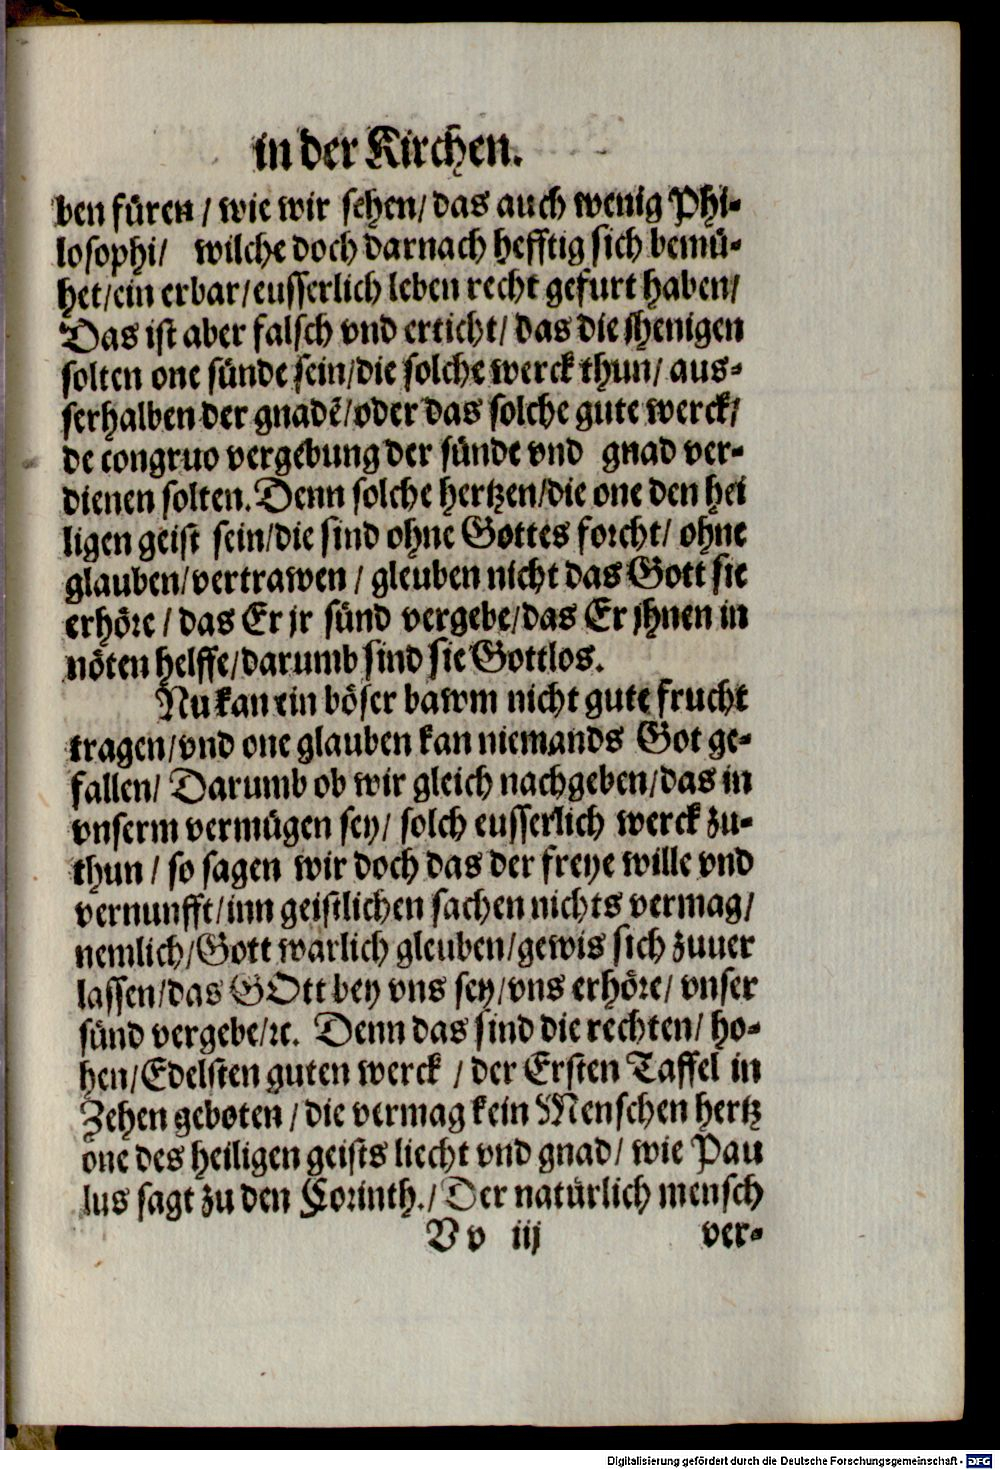 in der Kirchen.
ben füren / wie wir sehen / das auch wenig Phi-
losophi / wilche doch darnach hefftig sich bemü-
het / ein erbar / eusserlich leben recht gefurt haben /
Das ist aber falsch vnd erticht / das die jhenigen
solten one sünde sein / die solche werck thun / aus-
serhalben der gnadē / oder das solche gute werck /
de congruo vergebung der sünde vnd gnad ver-
dienen solten. Denn solche hertzen / die one den hei
ligen geist sein / die sind ohne Gottes forcht / ohne
glauben / vertrawen / gleuben nicht das Gott sie
erhöre / das Er jr sünd vergebe / das Er jhnen in
nöten helffe / darumb sind sie Gottlos.
Nu kan ein böser bawm nicht gute frucht
tragen / vnd one glauben kan niemands Got ge-
fallen / Darumb ob wir gleich nachgeben / das in
vnserm vermügen sey / solch eusserlich werck zu-
thun / so sagen wir doch das der freye wille vnd
vernunfft / inn geistlichen sachen nichts vermag /
nemlich / Gott warlich gleuben / gewis sich zuuer
lassen / das GOtt bey vns sey / vns erhöre / vnser
sünd vergebe / ꝛc. Denn das sind die rechten / ho-
hen / Edelsten guten werck / der Ersten Taffel in
Zehen geboten / die vermag kein Menschen hertz
one des heiligen geists liecht vnd gnad / wie Pau
lus sagt zu den Corinth. / Der natürlich mensch
V v iij ver-
Digitalisierung gefördert durch die Deutsche Forschungsgemeinschaft - DFG